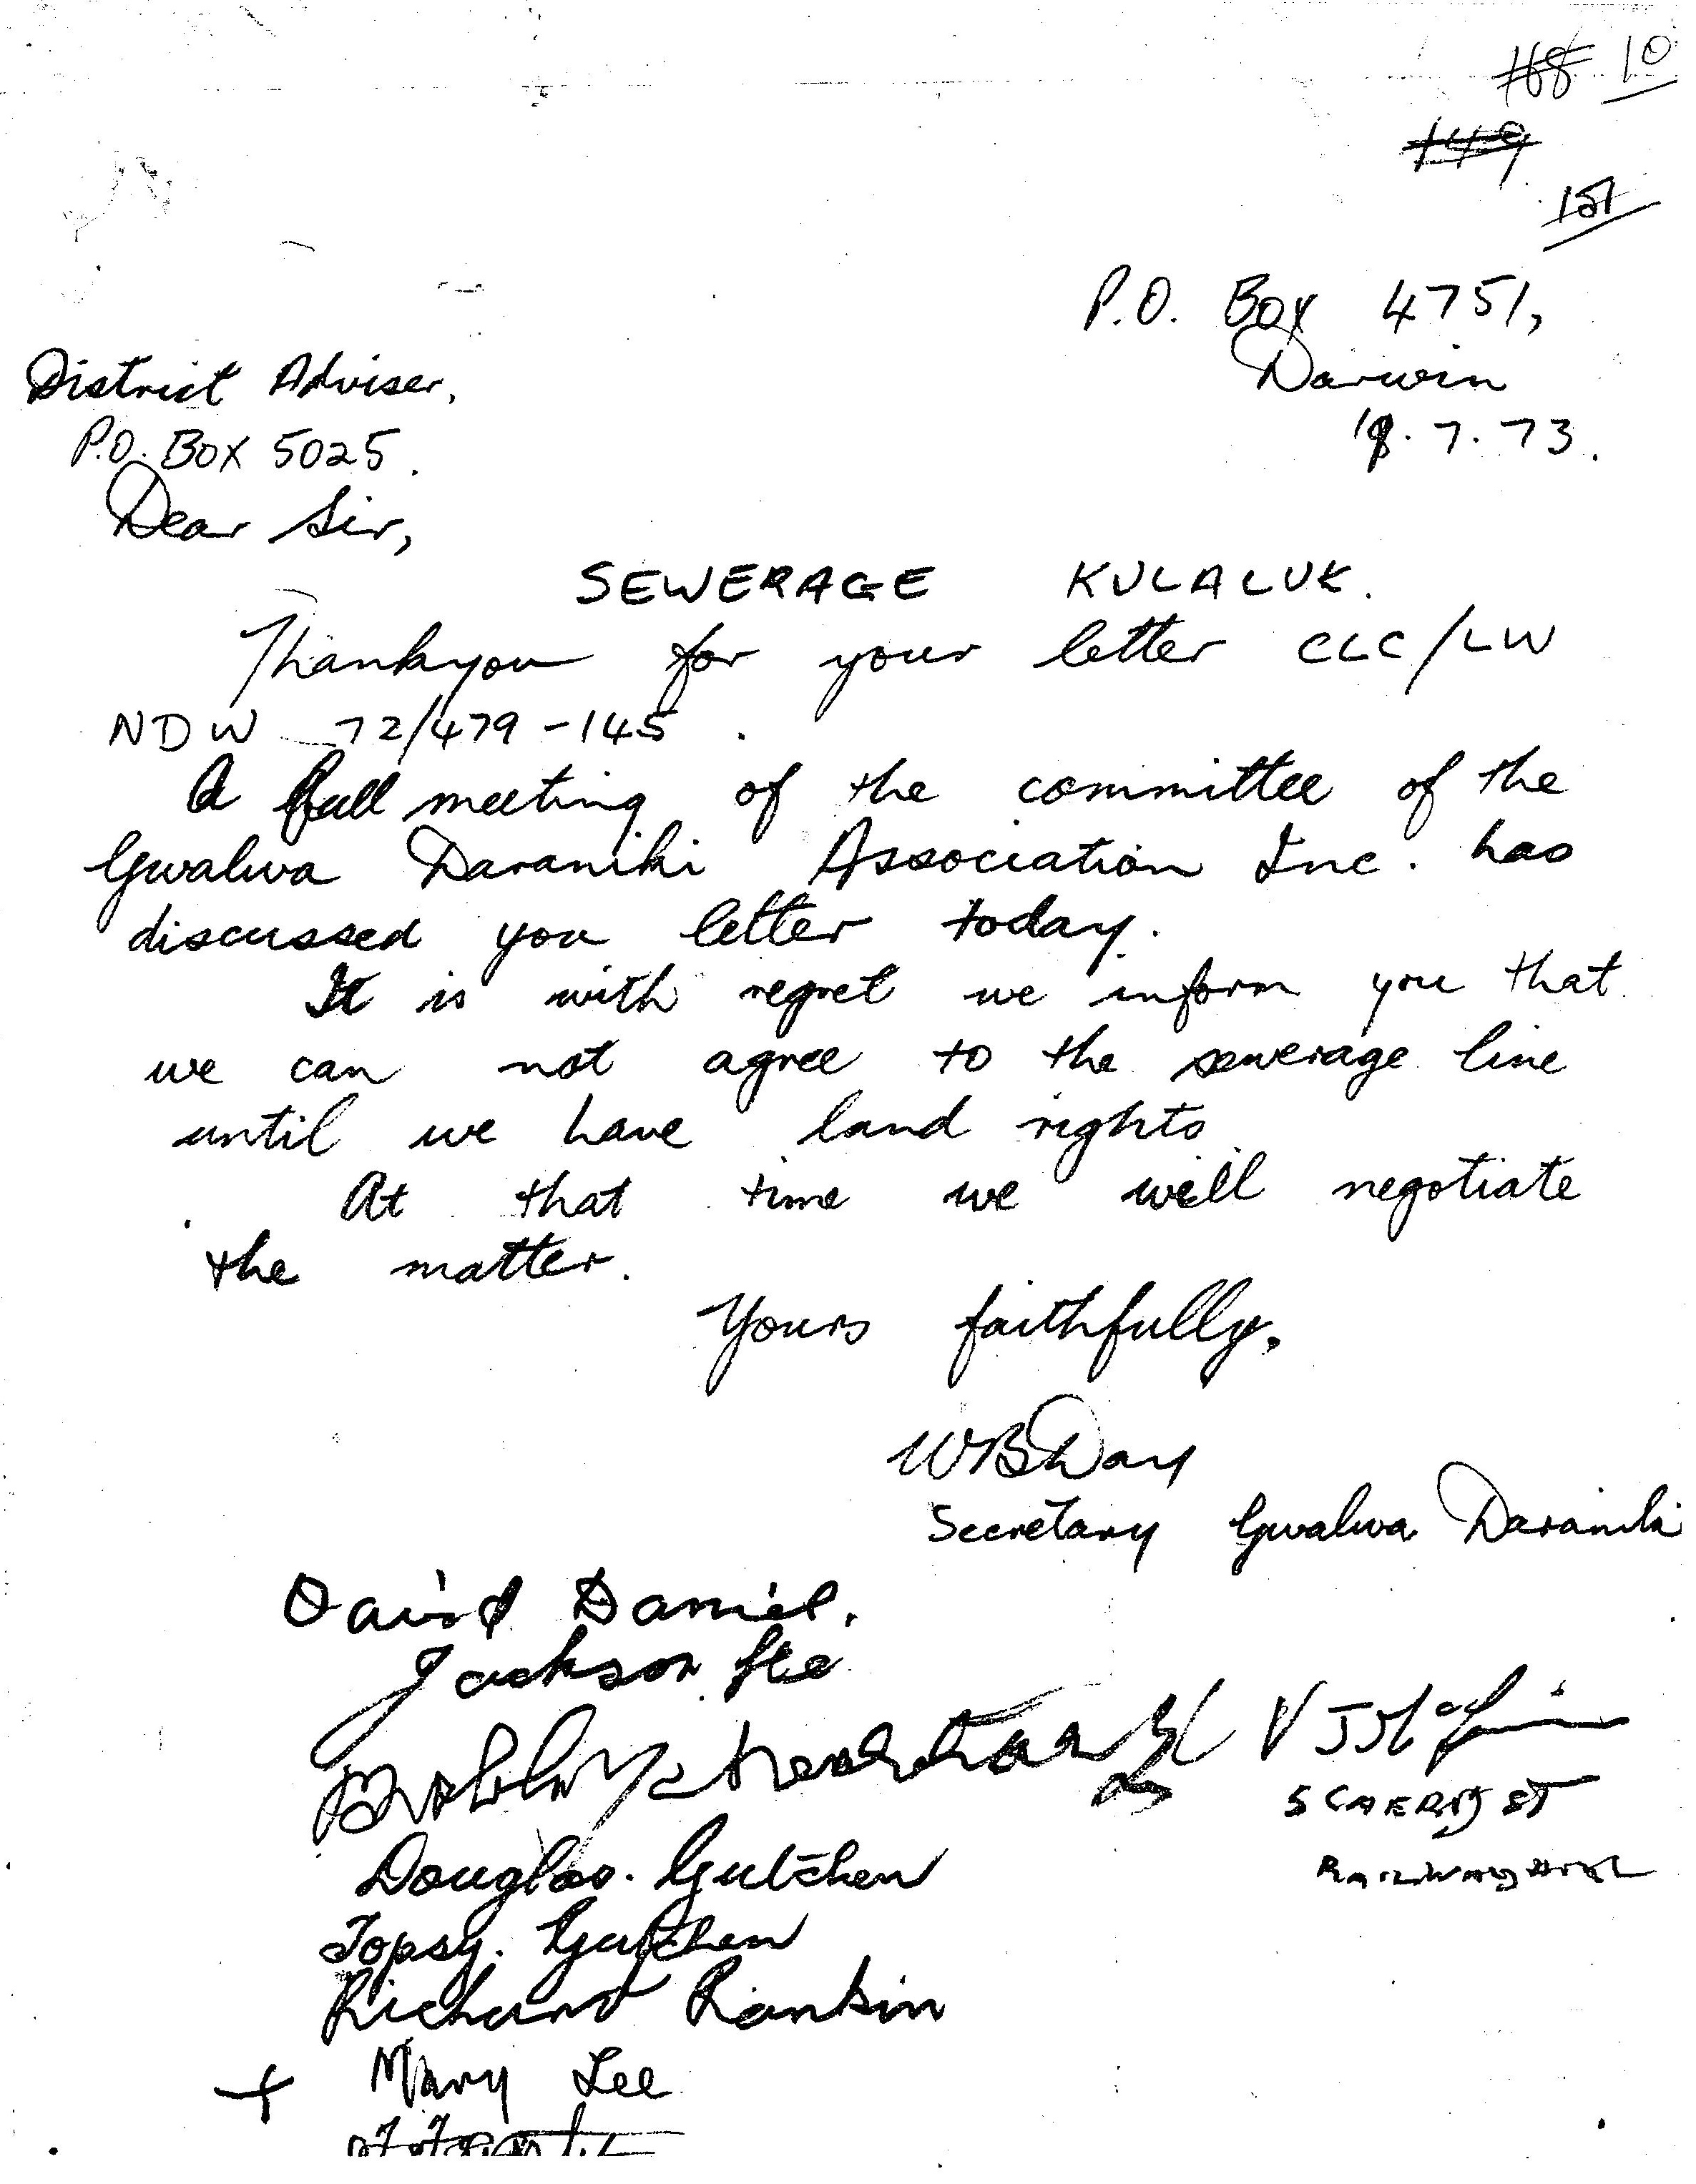 168 10
149
151
P.O. Box 4751,
Darwin
District Adviser,
P.O. Box 5025.
.7.73.
Dear Sir,
SEWERAGE KULALUK.
Thankyou for your letter CLC/LW
NDW 72/479-145.
A full meeting of the committee of the
Gwalwa Daraniki Association Inc. has
discussed you letter today.
It is with regret we inform you that
we can not agree to the sewerage line
until we have land rights
At that time we will negotiate
the matter.
Yours faithfully,
WBDay
Secretary Gwalwa Daraniki
David Daniel.
Jackson Lee
Bobby
V J
ST
Douglas. Gutchen
Topsy. Gutchen
Richard Rankin
+ Mary Lee